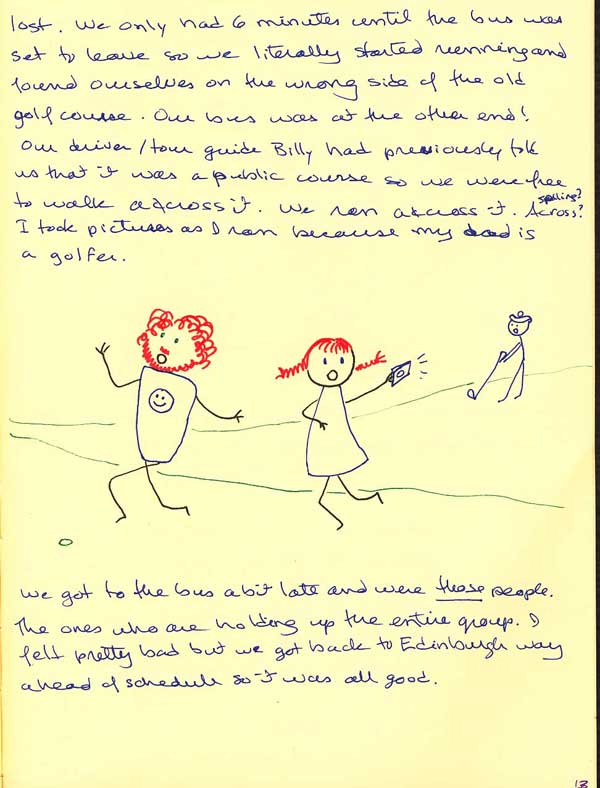 lost. We only had 6 minutes until the bus was
set to leave so we literally started running and
found ourselves on the wrong side of the old
golf course. Our bus was at the other end!
Our driver/tour guide Billy had previously told
us that it was a public course so we were free
to walk across it. We ran across it. Across? spelling?
I took pictures as I ran because my dad is
a golfer.
We got to the bus a bit late and were those people.
The ones who are holding up the entire group. I
felt pretty bad but we got back to Edinburgh way
ahead of schedule so it was all good.
13